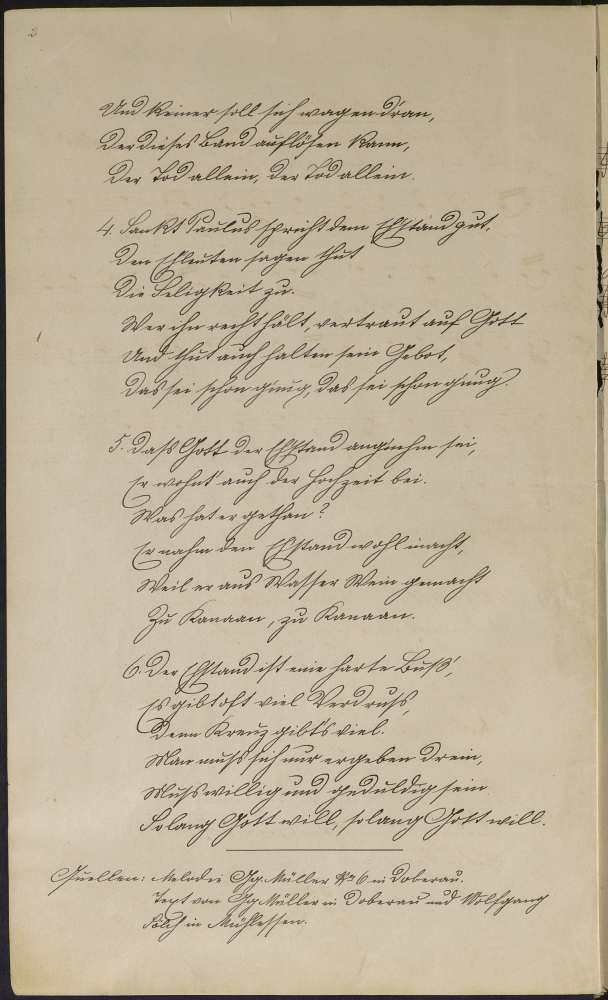 2
Und keiner soll sich wagen dran,
Der dieses Band auflösen kann,
Der Tod allein, der Tod allein.
4. Sankt Paulus spricht dem Ehstand gut,
Den Ehleuten sagen thut
Die Seligkeit zu.
Wer ihn recht hält, vertraut auf Gott
Und thut auch halten sein Gebot,
Das sei schon g'nug, das sei schon g'nug.
5. Dass Gott der Ehstand ang'nehm sei,
Er wohnt' auch der Hochzeit bei.
Was hat er gethan?
Er nahm den Ehstand wohl inacht,
Weil er aus Wasser Wein gemacht
Zu Kanaan, zu Kanaan.
6. Der Ehstand ist eine harte Buß',
Es gibt oft viel Verdruss,
Denn Kreuz gibt's viel.
Man muss sich nur ergeben drein,
Muss willig und geduldig sein
Solang Gott will, solang Gott will.
Quellen: Melodie Gg. Müller No 6 in Doberau.
Text von Gg. Müller in Doberau und Wolfgang
in Mühlessen.